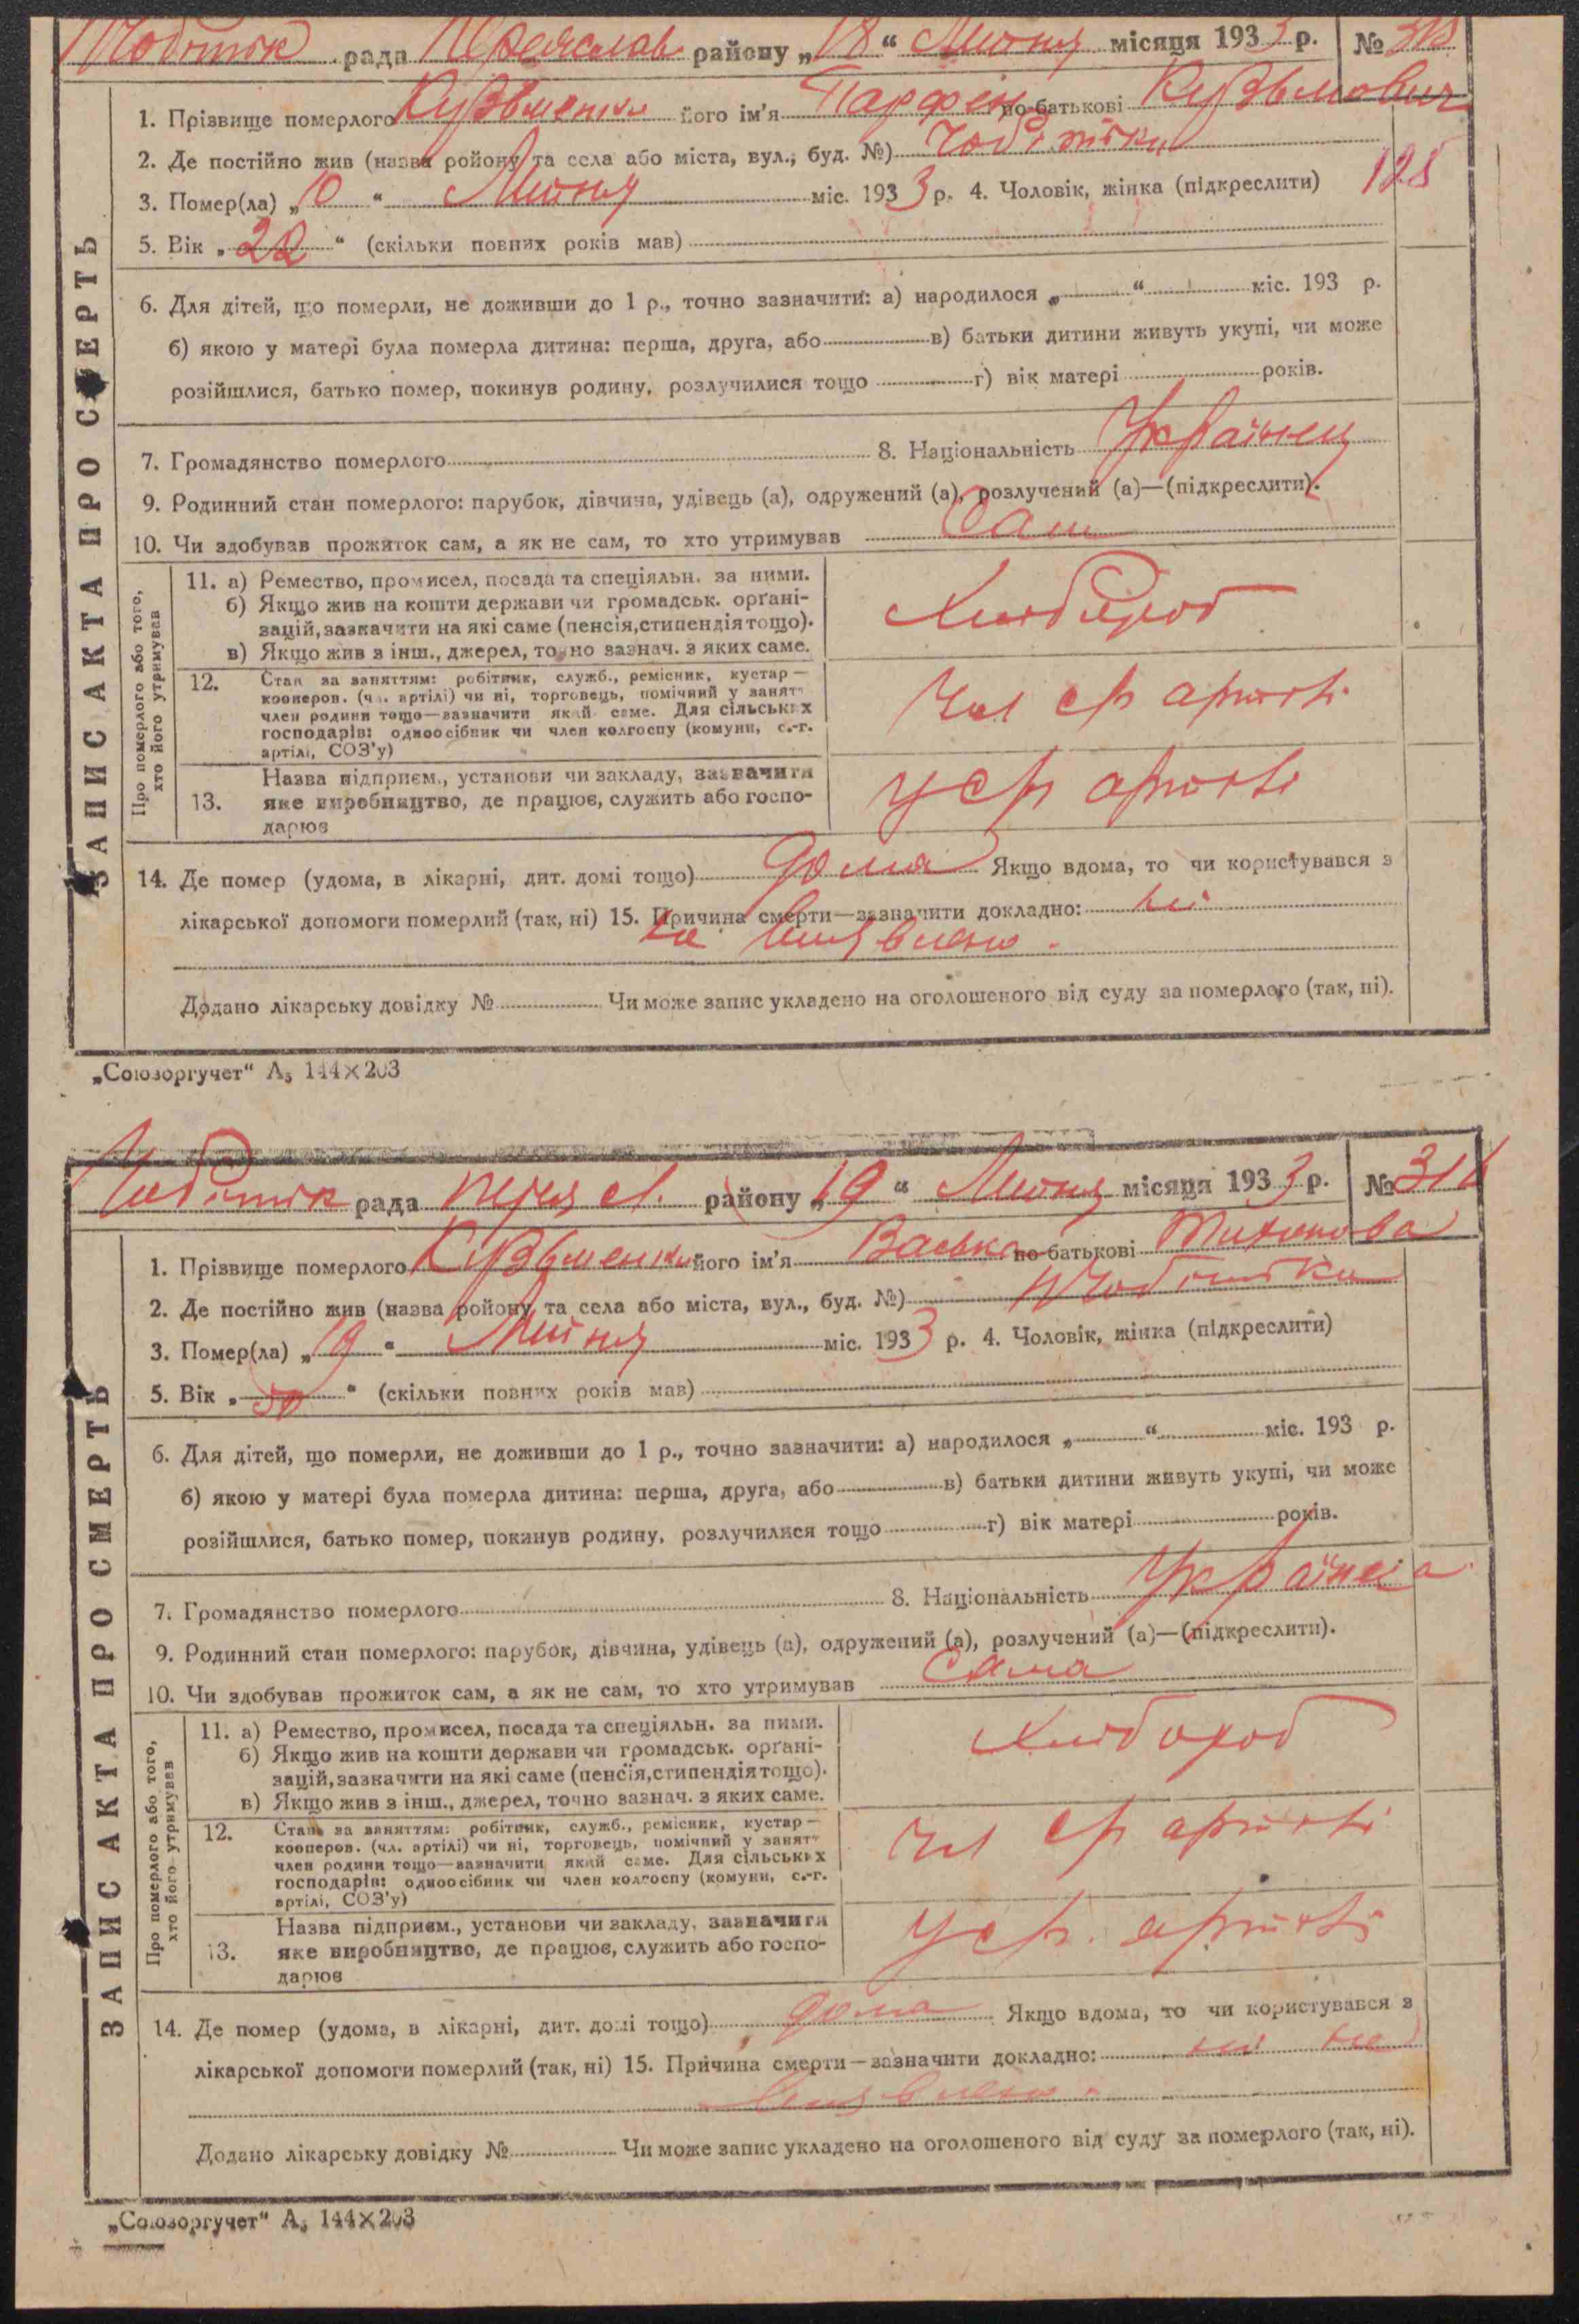 рада Переяслав району „18“ Липня місяця 1933 р. №
1. Прізвище померлого Кузьменко його ім'я Парфен по-батькові Кузьмович
2. Де постійно жив (назва ройону та села або міста, вул., буд. №) Чобітьки
3. Помер(ла) „ “ Липня міс. 1933 р. 4. Чоловік, жінка (підкреслити)
125
5. Вік „22“ (скільки повних років мав)
6. Для дітей, що померли, не доживши до 1 р., точно зазначити: а) народилося „ “ міс. 193 р.
б) якою у матері була померла дитина: перша, друга, або в) батьки дитини живуть укупі, чи може
розійшлися, батько помер, покинув родину, розлучилися тощо г) вік матері років.
7. Громадянство померлого 8. Національність Українец
9. Родинний стан померлого: парубок, дівчина, удівець (а), одружений (а), розлучений (а)—(підкреслити).
10. Чи здобував прожиток сам, а як не сам, то хто утримував Сам
ЗАПИС АКТА ПРО СМЕРТЬ
Про померлого або того,
хто його утримував
11. а) Ремество, промисел, посада та спеціяльн. за ними.
б) Якщо жив на кошти держави чи громадськ. орґані-
зацій, зазначити на які саме (пенсія, стипендія тощо).
в) Якщо жив з інш., джерел, точно зазнач. з яких саме.
Хлібороб
12. Стан за заняттям: робітник, служб., ремісник, кустар—
кооперов. (чл. артілі) чи ні, торговець, помічний у занятт
член родини тощо—зазначити який саме. Для сільських
господарів: одноосібник чи член колгоспу (комуни, с.-г.
артілі, СОЗ'у)
Чл ср артілі
13. Назва підприєм., установи чи закладу, зазначити
яке виробництво, де працює, служить або госпо-
дарює
у ср артілі
14. Де помер (удома, в лікарні, дит. домі тощо) дома Якщо вдома, то чи користувався з
лікарської допомоги померлий (так, ні) 15. Причина смерти—зазначити докладно: ні
не виявлено.
Додано лікарську довідку № Чи може запис укладено на оголошеного від суду за померлого (так, ні).
„Союзоргучет“ А₅ 144×203
Чобітьк рада Переясл. району „19“ Липня місяця 1933 р. №
1. Прізвище померлого Кузьменко його ім'я Васька по-батькові Тихонова
2. Де постійно жив (назва ройону та села або міста, вул., буд. №) Чобітьки
3. Помер(ла) „19“ Липня міс. 1933 р. 4. Чоловік, жінка (підкреслити)
5. Вік „50“ (скільки повних років мав)
6. Для дітей, що померли, не доживши до 1 р., точно зазначити: а) народилося „ “ міс. 193 р.
б) якою у матері була померла дитина: перша, друга, або в) батьки дитини живуть укупі, чи може
розійшлися, батько помер, покинув родину, розлучилися тощо г) вік матері років.
7. Громадянство померлого 8. Національність
9. Родинний стан померлого: парубок, дівчина, удівець (а), одружений (а), розлучений (а)—(підкреслити).
10. Чи здобував прожиток сам, а як не сам, то хто утримував Сама
ЗАПИС АКТА ПРО СМЕРТЬ
Про померлого або того,
хто його утримував
11. а) Ремество, промисел, посада та спеціяльн. за ними.
б) Якщо жив на кошти держави чи громадськ. орґані-
зацій, зазначити на які саме (пенсія, стипендія тощо).
в) Якщо жив з інш., джерел, точно зазнач. з яких саме.
Хлібороб
12. Стан за заняттям: робітник, служб., ремісник, кустар—
кооперов. (чл. артілі) чи ні, торговець, помічний у занятт
член родини тощо—зазначити який саме. Для сільських
господарів: одноосібник чи член колгоспу (комуни, с.-г.
артілі, СОЗ'у)
Чл ср артілі
13. Назва підприєм., установи чи закладу, зазначити
яке виробництво, де працює, служить або госпо-
дарює
у ср. артілі
14. Де помер (удома, в лікарні, дит. домі тощо) дома Якщо вдома, то чи користувався з
лікарської допомоги померлий (так, ні) 15. Причина смерти—зазначити докладно: ні не
виявлено.
Додано лікарську довідку № Чи може запис укладено на оголошеного від суду за померлого (так, ні).
„Союзоргучет“ А₅ 144×203